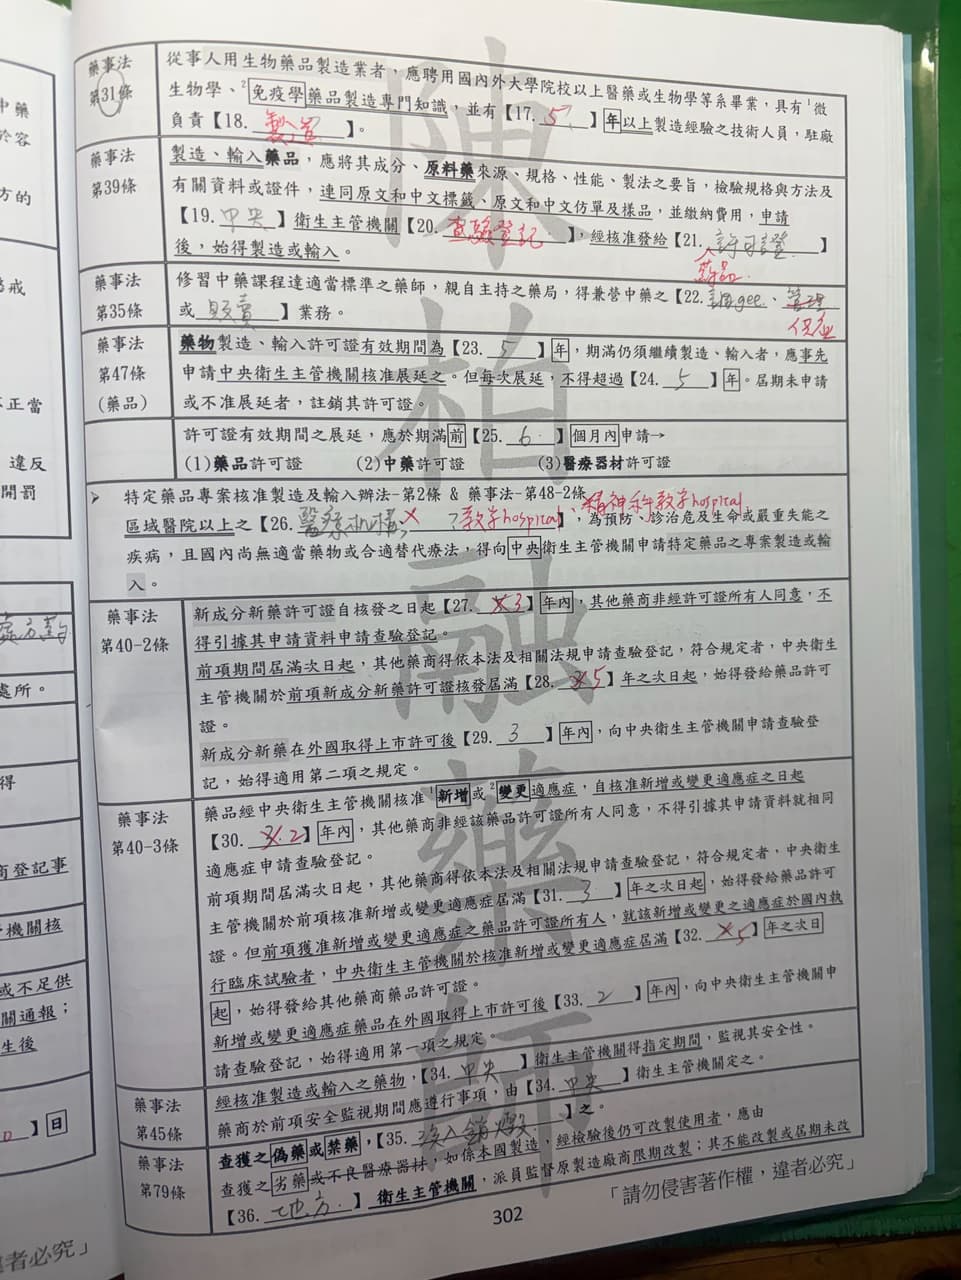 藥事法
第31條
從事人用生物藥品製造業者，應聘用國內外大學院校以上醫藥或生物學等系畢業，具有¹微
生物學、²免疫學藥品製造專門知識，並有【17. 5 】年以上製造經驗之技術人員，駐廠
負責【18. 製造 】。
藥事法
第39條
製造、輸入藥品，應將其成分、原料藥來源、規格、性能、製法之要旨，檢驗規格與方法及
有關資料或證件，連同原文和中文標籤、原文和中文仿單及樣品，並繳納費用，申請
【19. 中央 】衛生主管機關【20. 查驗登記 】，經核准發給【21. 許可證 】
藥品
後，始得製造或輸入。
藥事法
第35條
修習中藥課程達適當標準之藥師，親自主持之藥局，得兼營中藥之【22. 調gee、管理
供應
或 販賣 】業務。
藥事法
第47條
(藥品)
藥物製造、輸入許可證有效期間為【23. 5 】年，期滿仍須繼續製造、輸入者，應事先
申請中央衛生主管機關核准展延之。但每次展延，不得超過【24. 5 】年。屆期未申請
或不准展延者，註銷其許可證。
許可證有效期間之展延，應於期滿前【25. 6 】個月內申請→
(1)藥品許可證 (2)中藥許可證 (3)醫療器材許可證
➢ 特定藥品專案核准製造及輸入辦法-第2條 & 藥事法-第48-2條
、精神科教學hospital
區域醫院以上之【26. 醫療機構 ✗ ？教學hospital 】，為預防、診治危及生命或嚴重失能之
疾病，且國內尚無適當藥物或合適替代療法，得向中央衛生主管機關申請特定藥品之專案製造或輸
入。
藥事法
第40-2條
新成分新藥許可證自核發之日起【27. 3 】年內，其他藥商非經許可證所有人同意，不
得引據其申請資料申請查驗登記。
前項期間屆滿次日起，其他藥商得依本法及相關法規申請查驗登記，符合規定者，中央衛生
主管機關於前項新成分新藥許可證核發屆滿【28. 5 】年之次日起，始得發給藥品許可
證。
新成分新藥在外國取得上市許可後【29. 3 】年內，向中央衛生主管機關申請查驗登
記，始得適用第二項之規定。
藥事法
第40-3條
藥品經中央衛生主管機關核准¹新增或²變更適應症，自核准新增或變更適應症之日起
【30. 2 】年內，其他藥商非經該藥品許可證所有人同意，不得引據其申請資料就相同
適應症申請查驗登記。
前項期間屆滿次日起，其他藥商得依本法及相關法規申請查驗登記，符合規定者，中央衛生
主管機關於前項核准新增或變更適應症屆滿【31. 3 】年之次日起，始得發給藥品許可
證。但前項獲准新增或變更適應症之藥品許可證所有人，就該新增或變更之適應症於國內執
行臨床試驗者，中央衛生主管機關於核准新增或變更適應症屆滿【32. 5 】年之次日
起，始得發給其他藥商藥品許可證。
新增或變更適應症藥品在外國取得上市許可後【33. 2 】年內，向中央衛生主管機關申
請查驗登記，始得適用第一項之規定。
藥事法
第45條
經核准製造或輸入之藥物，【34. 中央 】衛生主管機關得指定期間，監視其安全性。
藥商於前項安全監視期間應遵行事項，由【34. 中央 】衛生主管機關定之。
藥事法
第79條
查獲之偽藥或禁藥，【35. 沒入銷燬 】之。
查獲之劣藥或不良醫療器材，如係本國製造，經檢驗後仍可改製使用者，應由
【36. 地方 】衛生主管機關，派員監督原製造廠商限期改製；其不能改製或屆期未改
302
「請勿侵害著作權，違者必究」
陳柏融藥師
中藥
於容
方的
戒
正當
違反
開罰
處方藥
處所。
得
商登記事
機關核
或不足供
關通報；
生後
】日
者必究」